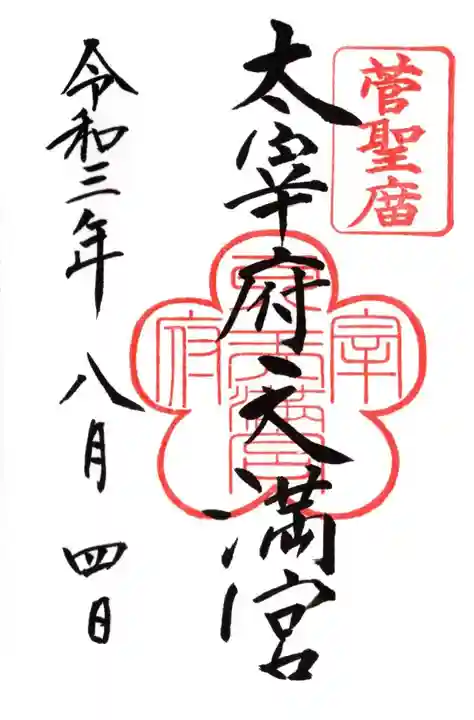 菅聖庿
太宰府天満宮
令和三年八月四日